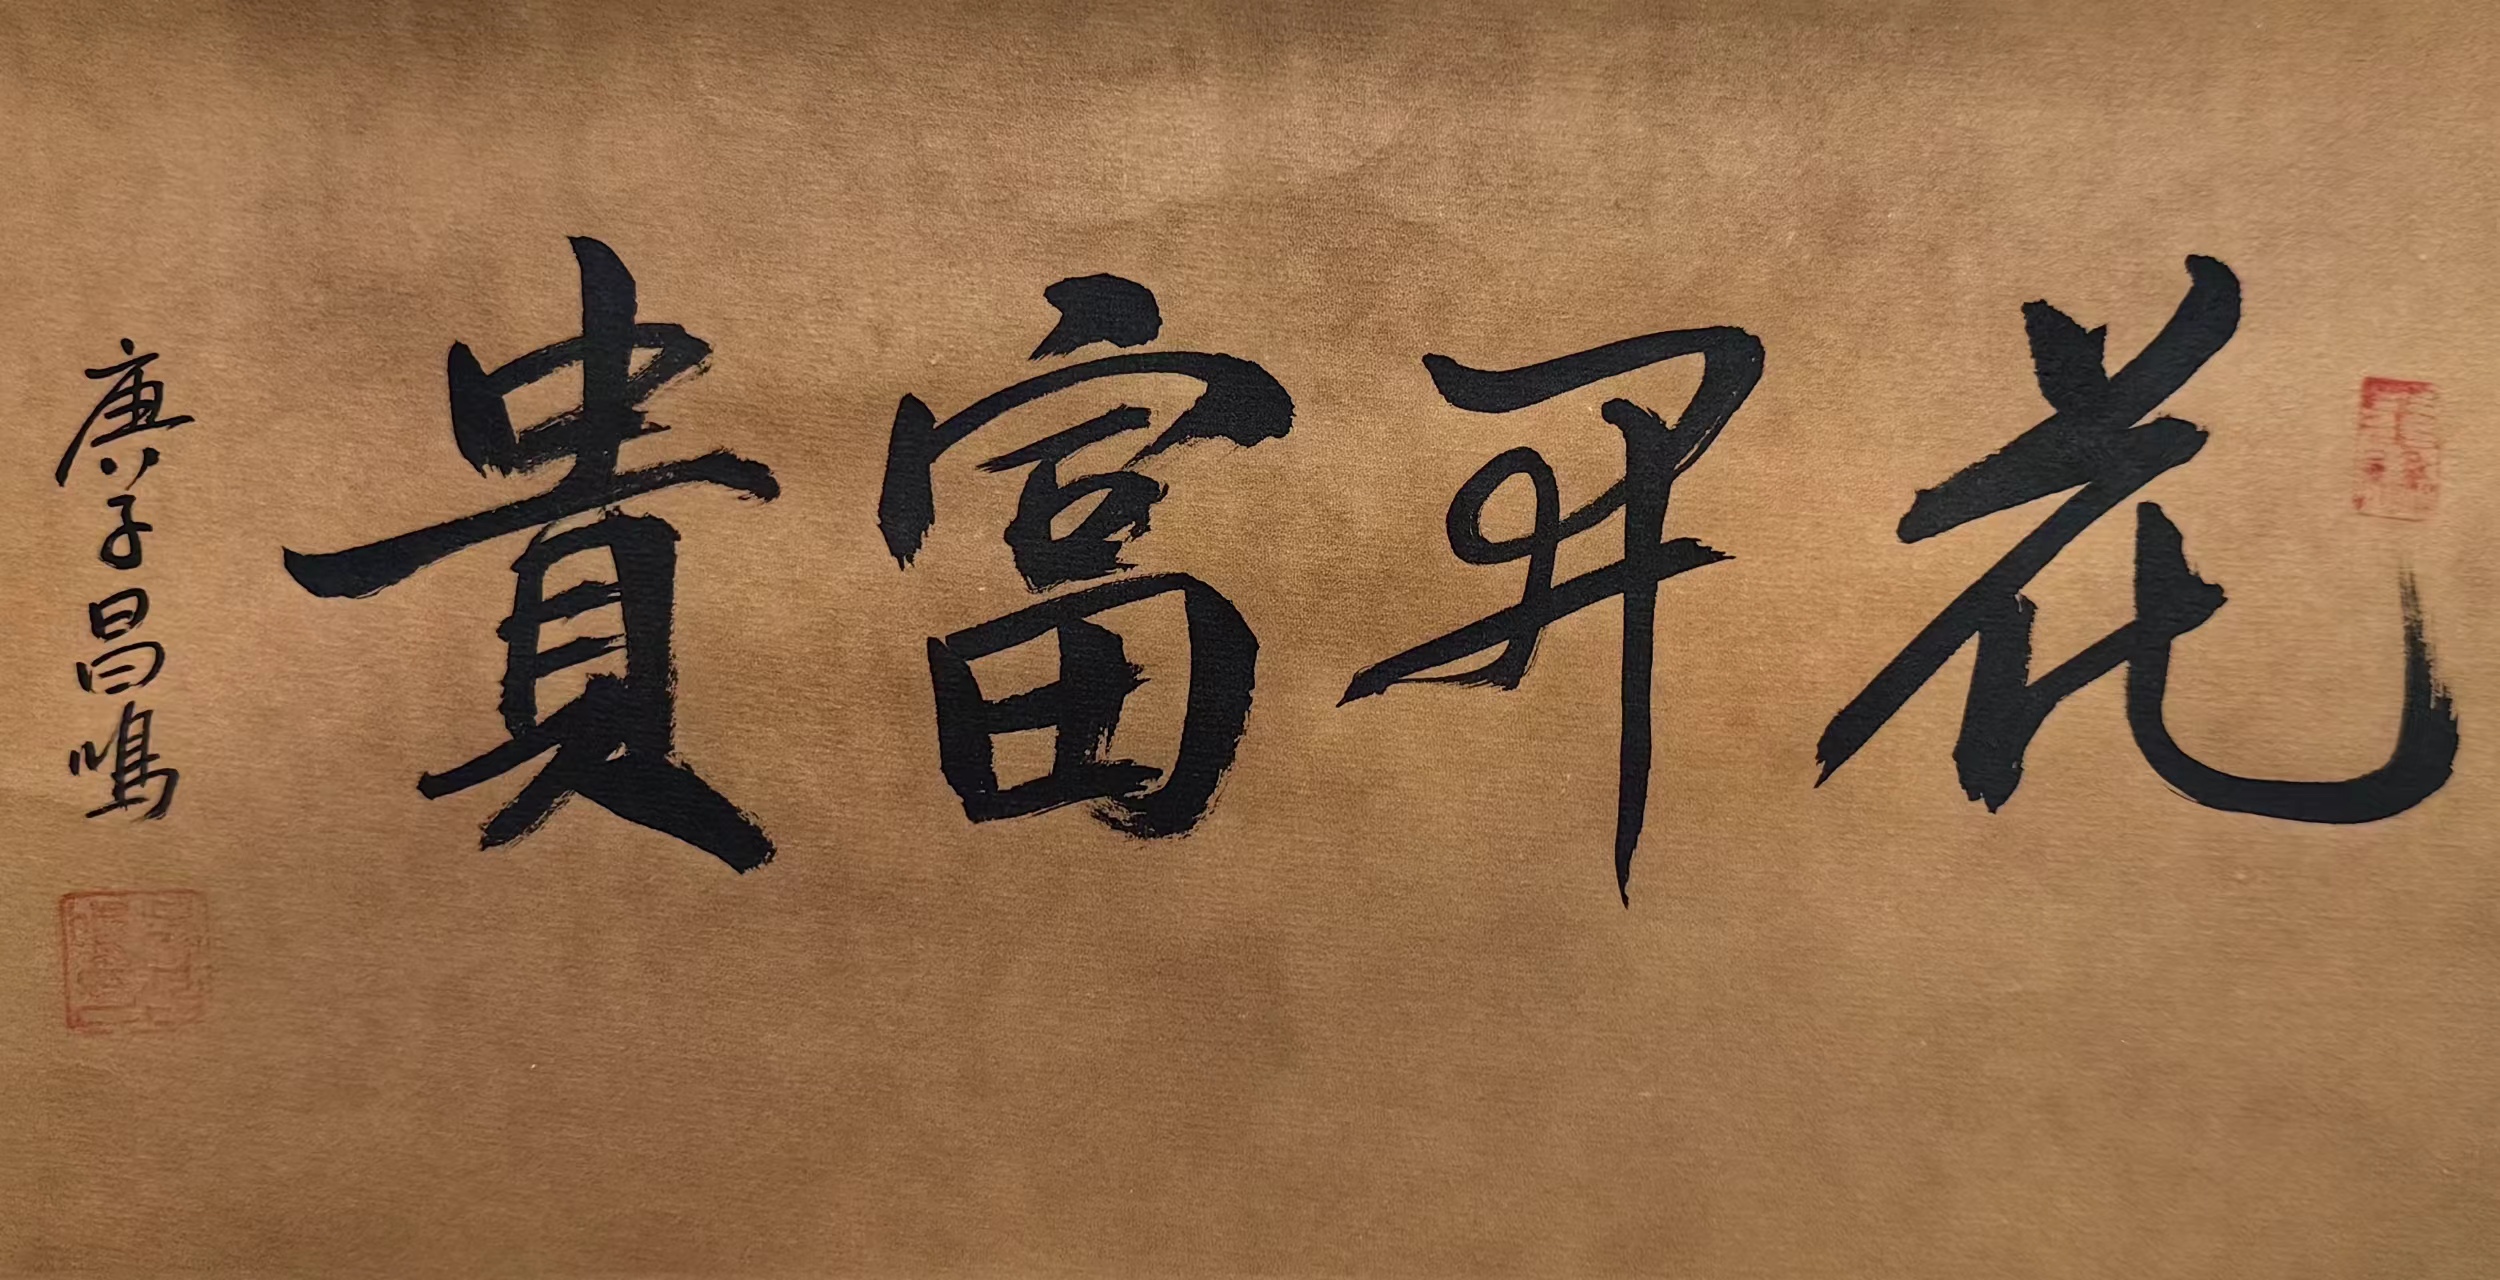 花开富貴
庚子昌鳴